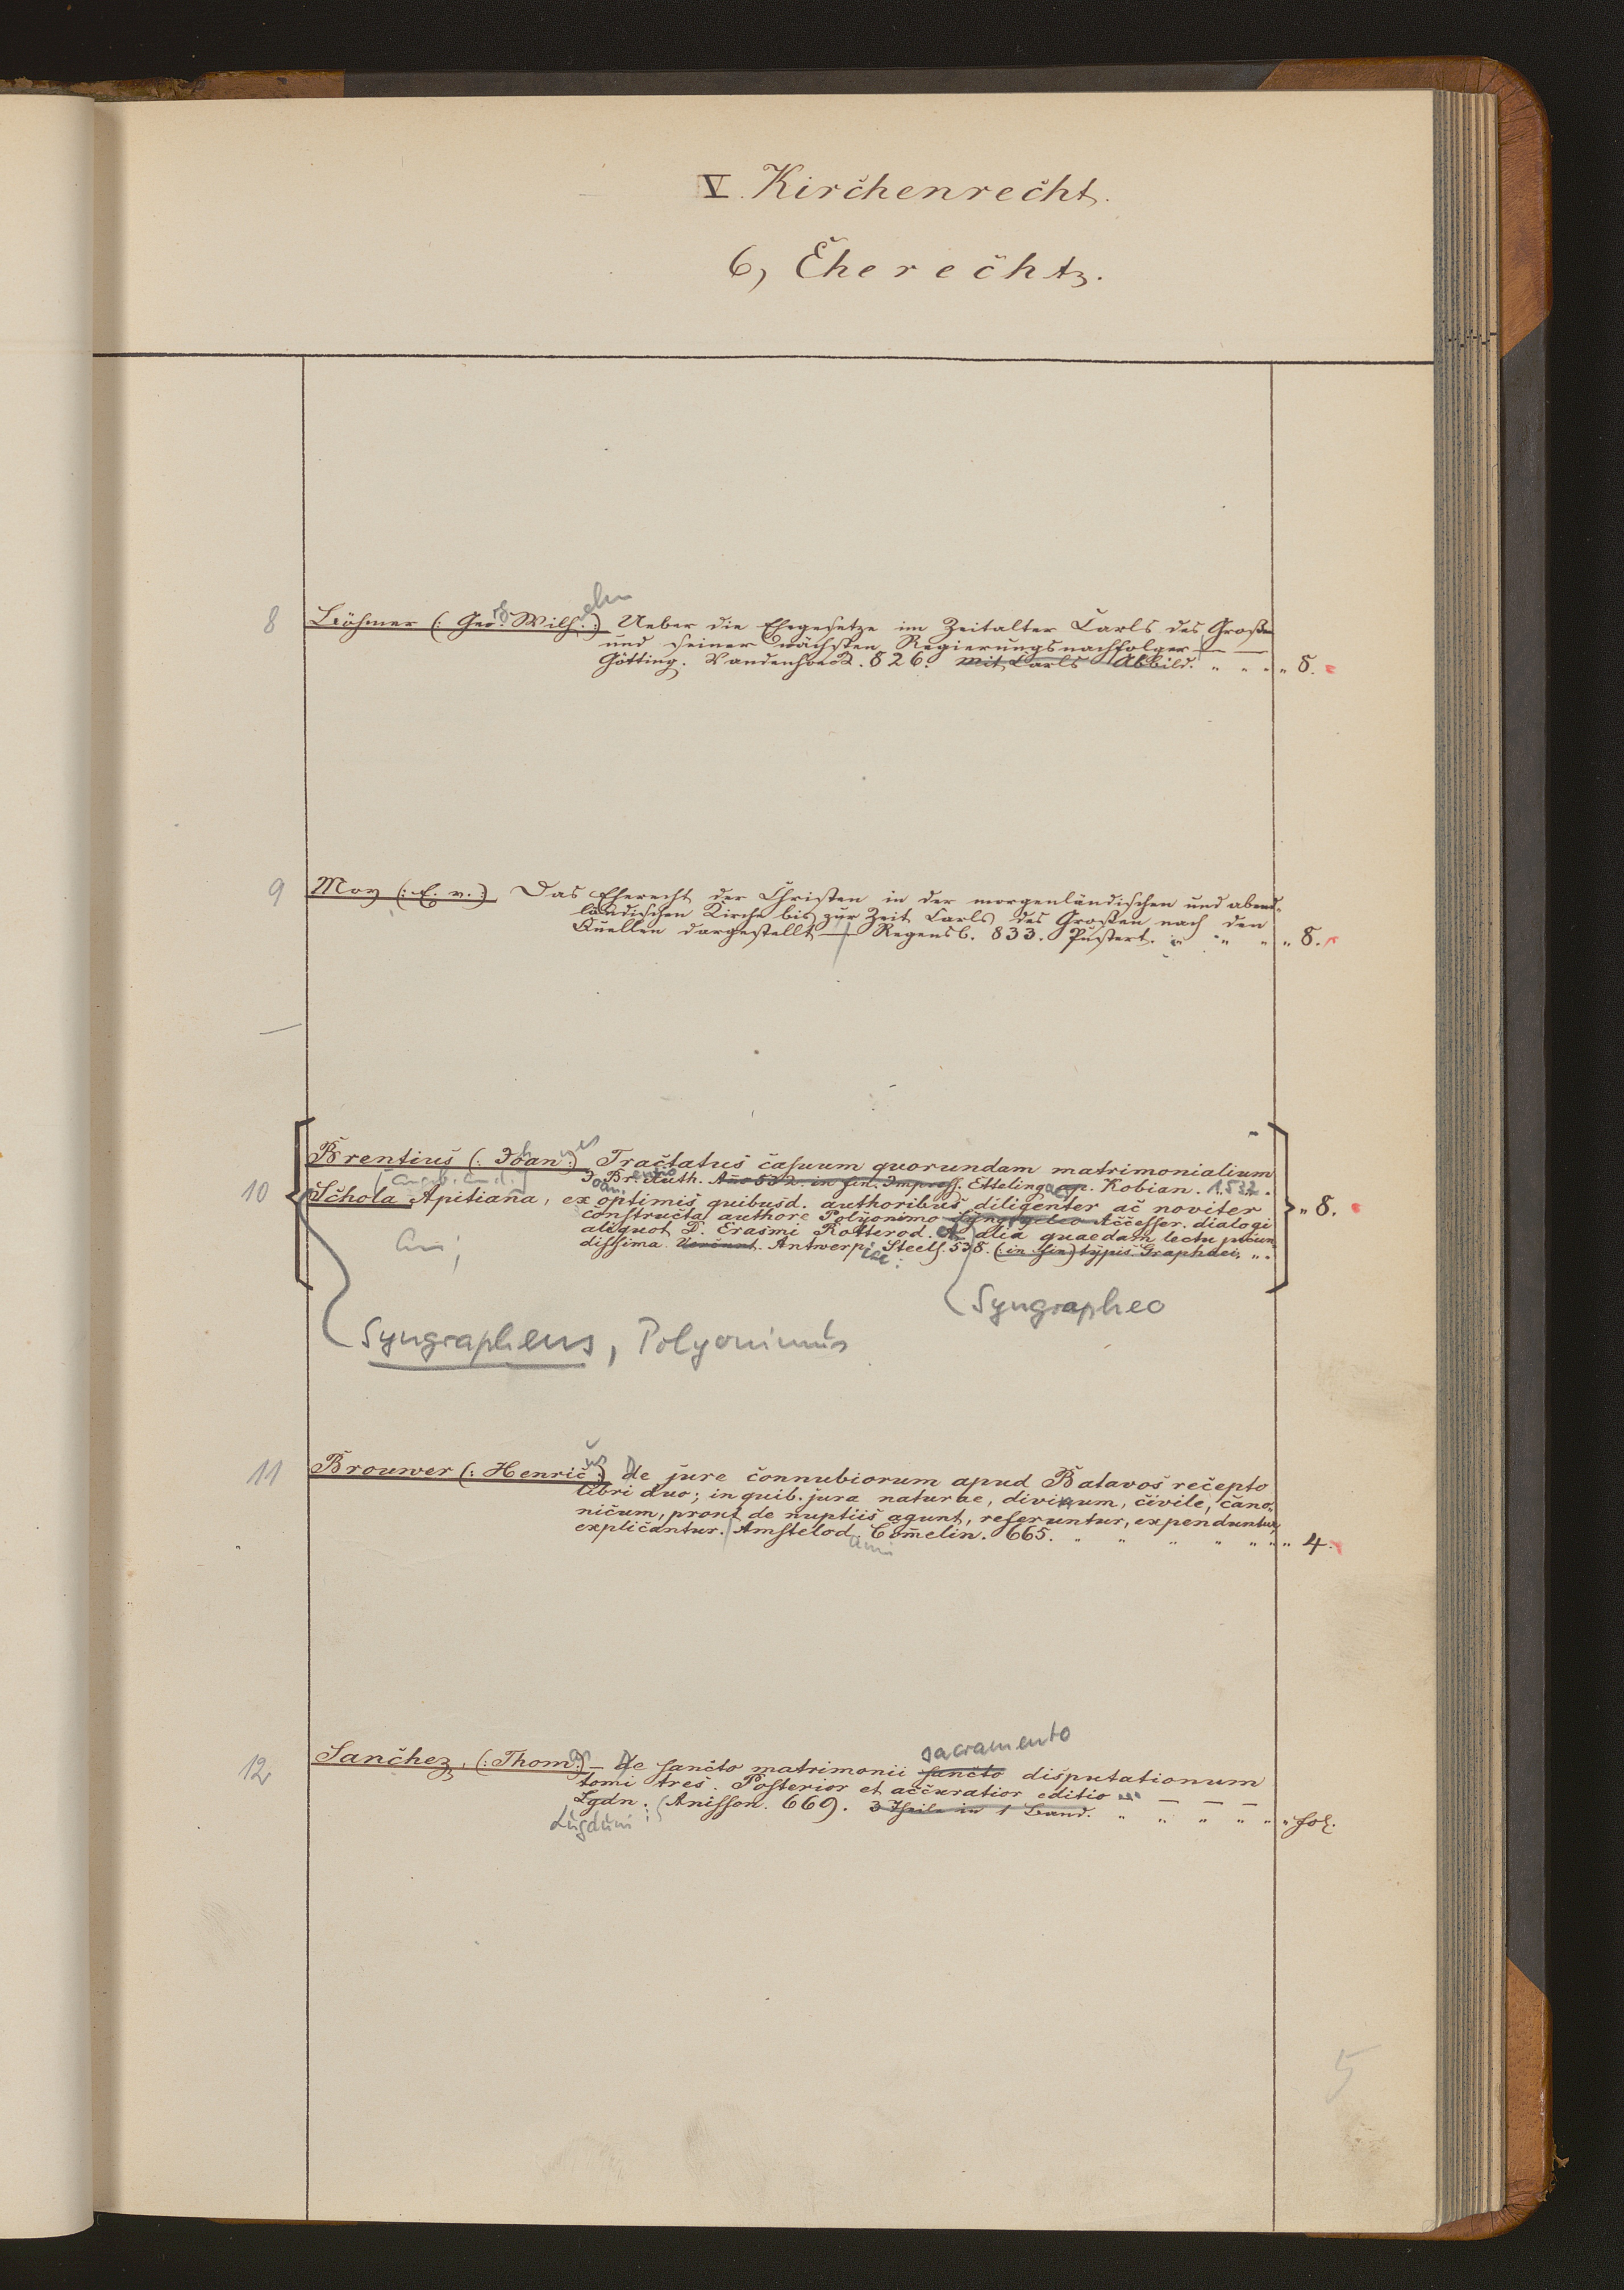 V. Kirchenrecht.
6, Eherecht.
8 Böhmer (: Geo. Wilh. :) Ueber die Ehegesetze im Zeitalter Carls des Großen
und seiner nächsten Regierungsnachfolger — —
Götting. Vandenhoeck. 826. Mit Carls Abbild. „ „ „ „ 8.
9 Moy (: E. v. :) Das Eherecht der Christen in der morgenländischen und abend-
ländischen Kirche bis zur Zeit Carls des Großen nach den
Quellen dargestellt — Regensb. 833. Pustert. „ „ „ „ 8.
Brentius (: Johannes :) Tractatus casuum quorundam matrimonialium
Jo. Br. Auth. Año 532. in fin. Impress. Ettelingae ap. Kobian. 1532.
10 Schola Apitiana, ex optimis quibusd. authoribus diligenter ac noviter
constructa authore Polyonimo Syngrapheo Accesser. dialogi
aliquot D. Erasmi Rotterod. et alia quaedam lectu jucun
dissima. Antwerpiae: Steels. 538. (in fin) typis Graphaei. „ „ 8.
Syngrapheo
Syngrapheus, Polyonimus
11 Brouwer (: Henricus :) De jure connubiorum apud Batavos recepto
libri duo; in quib. jura naturae, divinum, civile, cano-
nicum, prout de nuptiis agunt, referuntur, expenduntur,
explicantur. Amstelod. Com̄elin. 665. „ „ „ „ „ „ 4.
ami
sacramento
12 Sanchez, (: Thomas :) — De sancto matrimonii sancto disputationum
tomi tres. Posterior et accuratior editio — — —
Lgdn. Anisson. 669. 3 Theile in 1 Band. „ „ „ „ „ fol.
Lugduni:
5